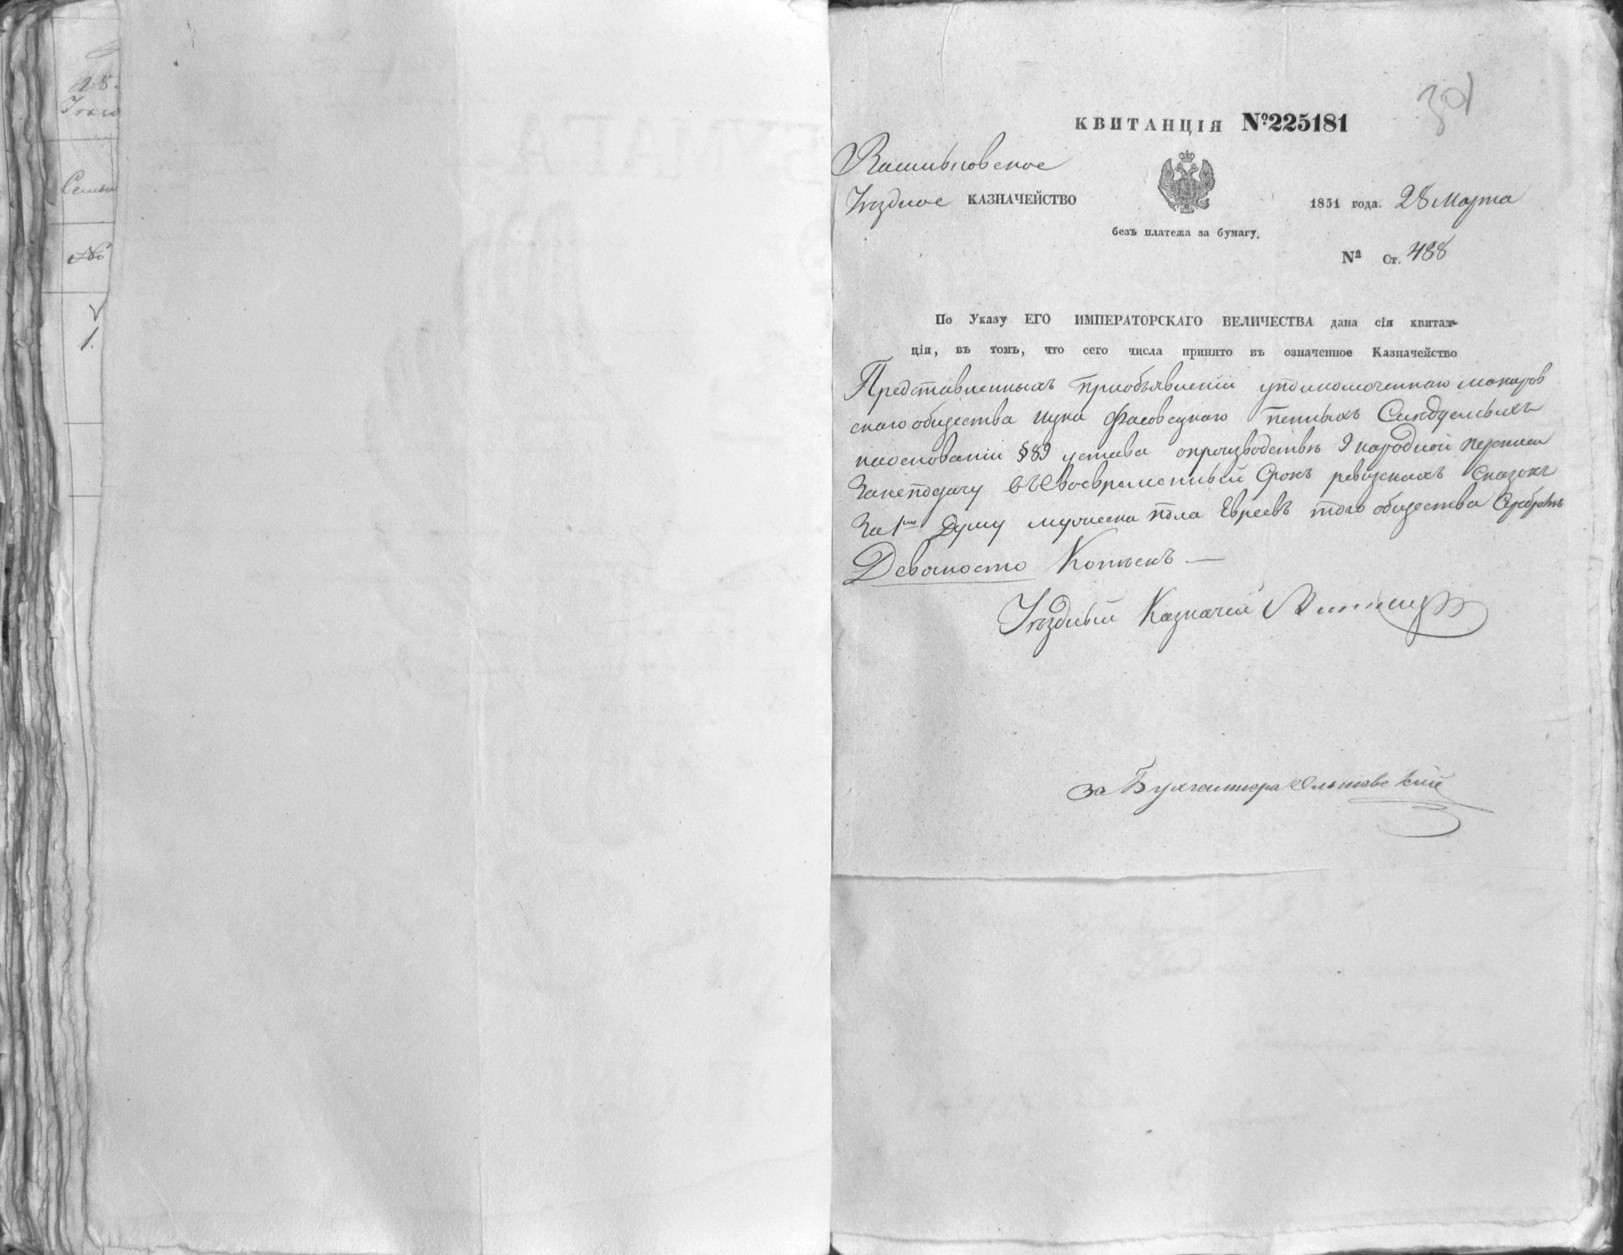 28.
Семьи
№
1.
301
КВИТАНЦІЯ №225181
Васильковское
Уѣздное КАЗНАЧЕЙСТВО
1851 года. 28 Марта
безъ платежа за бумагу.
№ Ст. 488
По Указу ЕГО ИМПЕРАТОРСКАГО ВЕЛИЧЕСТВА дана сія квитан-
ція, въ томъ, что сего числа принято въ означенное Казначейство
Представленныхъ приобъявленіи уполномоченнаго макаров
скаго общества пенныхъ
наоснованіи §89 устава опроизводствѣ 9 народной переписи
Занеподачу въ Своевременный Срокъ ревизскихъ Сказокъ
За 1ну Душу мужеска пола Евреевъ того общества Серебромъ
Девяносто Копѣекъ —
Уѣздный Казначей
за Бухгалтера